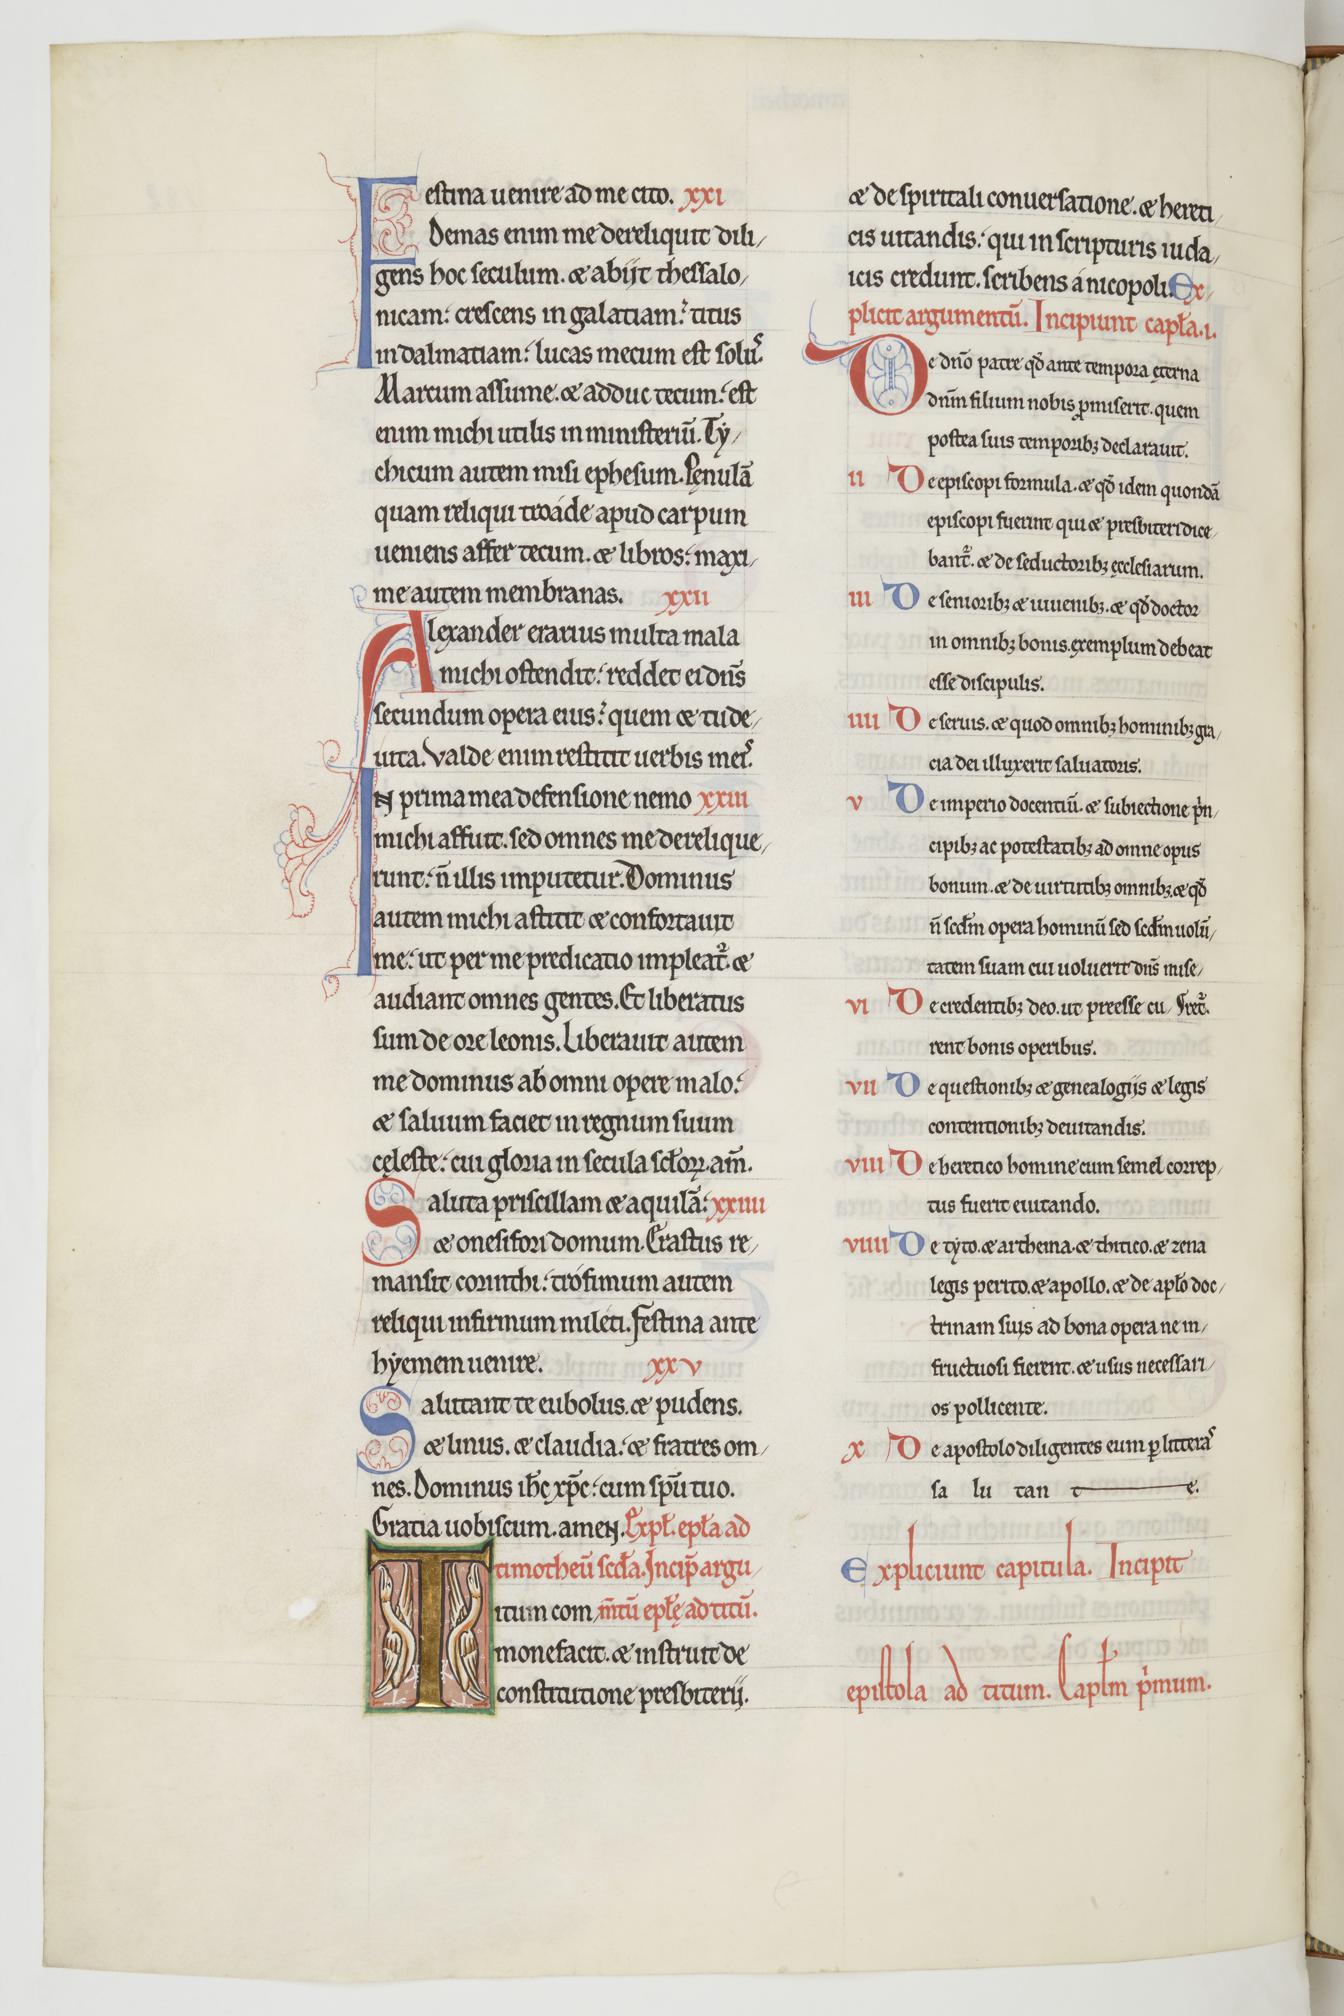 Festina uenire ad me cito. xxi
Demas enim me dereliquit dili/
gens hoc seculum. & abijt thessalo/
nicam: crescens in galatiam: titus
in dalmatiam: lucas mecum est solus.
Marcum assume. & adduc tecum: est
enim michi utilis in ministeriū. Ty/
chicum autem misi ephesum. Penulā
quam reliqui troáde apud carpum
ueniens affer tecum. & libros: maxi/
me autem membranas. xxii
Alexander erarius multa mala
michi ostendit: reddet ei dn̄s
secundum opera eius: quem & tu de/
uita. Valde enim restitit uerbis meis.
IN prima mea defensione nemo xxiii
michi affuit. sed omnes me derelique/
runt: n̄ illis imputetur. Dominus
autem michi astitit & confortauit
me: ut per me predicatio impleat᷑. &
audiant omnes gentes. Et liberatus
sum de ore leonis. Liberauit autem
me dominus ab omni opere malo:
& saluum faciet in regnum suum
cęleste: cui gloria in secula scl̄oꝝ. am̄.
Saluta priscillam & aquilā: xxiiii
& onesifori domum. Erastus re/
mansit corinthi: trófimum autem
reliqui infirmum miléti. Festina ante
hyemem uenire. xxv
Salutant te eubolus. & pudens.
& linus. & claudia: & fratres om/
nes. Dominus ih̄c xp̄c: cum sp̄u tuo.
Gratia uobiscum. amen. Expl̄. epl̄a ad
timotheū scd̄a. Incip̄ argu/
Titum com/ m̄tū epl̄ę ad titū.
monefacit. & instruit de
constitutione presbiterij.
& de spiritali conuersatione. & hereti/
cis uitandis: qui in scripturis iuda/
icis credunt. scribens á nicopoli. Ex/
plicit argumentū. Incipiunt capl̄a. i.
De dn̄o patre qd̄ ante tempora ęterna
dn̄m filium nobis ꝓmiserit. quem
postea suis temporibꝫ declarauit.
ii De episcopi formula. & qd̄ idem quondā
episcopi fuerint qui & presbiteri dice/
bant᷑. & de seductoribꝫ ęcclesiarum.
iii De senioribꝫ & iuuenibꝫ. & qd̄ doctor
in omnibꝫ bonis. exemplum debeat
esse discipulis.
iiii De seruis. & quod omnibꝫ hominibꝫ gra/
cia dei illuxerit saluatoris.
v De imperio docentiū. & subiectione pin/
cipibꝫ ac potestatibꝫ ad omne opus
bonum. & de uirtutibꝫ omnibꝫ. & qd̄
n̄ scd̄m opera hominū sed scd̄m uolū/
tatem suam cui uoluerit dn̄s mise/
vi De credentibꝫ deo. ut preesse cu/ ret᷑.
rent bonis operibus.
vii De questionibꝫ & genealogijs & legis
contentionibꝫ deuitandis.
viii De heretico homine cum semel correp/
tus fuerit euitando.
viiii De tyto. & arthema. & thitico. & zena
legis perito. & apollo. & de apl̄o doc/
trinam suis ad bona opera ne in/
fructuosi fierent. & usus necessari/
os pollicente.
x De apostolo diligentes eum ꝑ litteras
sa lu tan t ę.
Expliciunt capitula. Incipit
epistola ad titum. Capl̄m pimum.